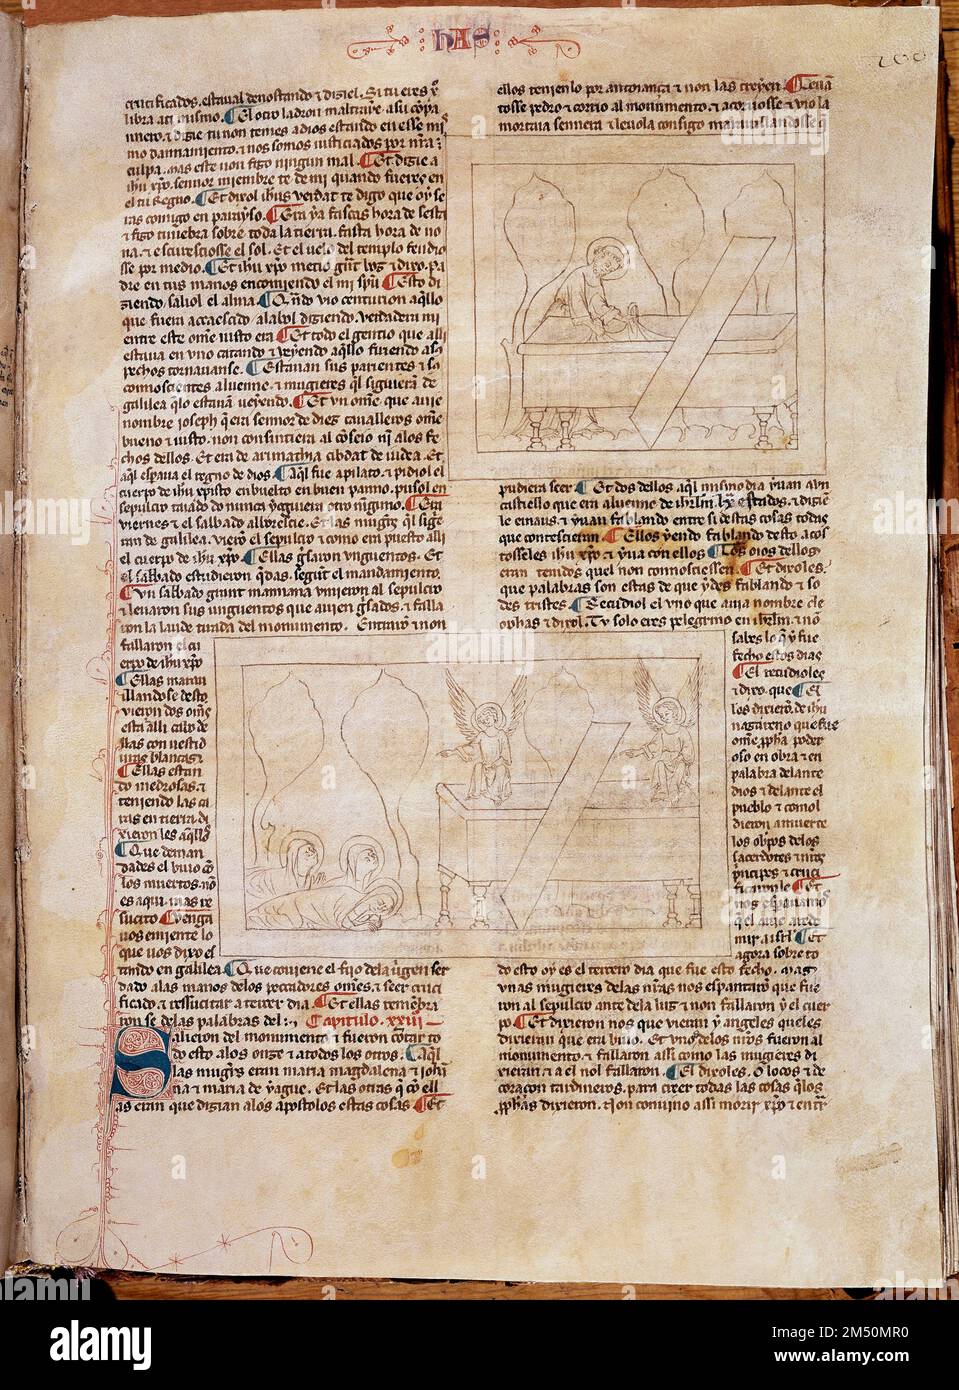 crucificados. estaual denostando & diziel. Si tu eres xp̃o
libra ati mismo. ¶El otro ladron maltraye asu cõpa
nnero. & dizie tu non temes a dios estando en esse mis
mo dannamiento. & nos somos iusticiados por nr̃a
culpa. mas este non fizo ningun mal. ¶Et dizie a
ihũ xp̃o. sennor miembre te de mi quando fueres en
el tu Regno. ¶Et dixol ihũs verdat te digo que oy se
ras comigo en parayso. ¶Era ya fascas hora de sesta
& fizo tiniebra sobre toda la tierra. fasta hora de no
na. & escuresciosse el sol. Et el uelo del templo fendio
sse por medio. ¶Et ihũ xp̃o metio grãt boz & dixo. Pa
dre en tus manos encomiendo el mi spũ ¶Esto di
ziendo. saliol el alma. ¶Quãdo vio centurion aq̃llo
que fuera acaescido alabol diziendo. verdadera mi
entre este ome iusto era ¶Et todo el gentio que alli
estaua en vno catando & veyendo aq̃llo firiendo asus
pechos tornauanse. ¶Estauan sus parientes & sus
connoscientes aluenne. & mugieres q̃l siguieran de
galilea q̃lo estauã veyendo. ¶Et vn ome. que auie
nombre ioseph q̃ era sennor de diez caualleros ome
bueno & iusto. non consintiera al cõseio nĩ alos fe
chos dellos. Et era de arimathia cibdat de iudea. Et
aq̃l esperaua el regno de dios. ¶Aq̃l fue a pilato. & pidiol el
cuerpo de ihũ xp̃isto enbuelto en buen panno. pusol en
sepulcro taiado do nunca yoguiera otro nĩguno. ¶Era
viernes & el sabbado alborescie. Et las mugieres q̃l sigie
ran de galilea. vierõ el sepulcro & como era puesto alli
el cuerpo de ihũ xp̃o. ¶Ellas guisaron vnguentos. Et
el sabbado estudieron q̃das. segũt el mandamiento.
¶Vn sabbado grant mannana vinieron al sepulcro
& leuaron sus vnguentos que auien guisados. & falla
ron la laude tirada del monumento. Entrarõ & non
fallaron el cu
erpo de ihũ xp̃o
¶Ellas maraui
llando se desto
vieron dos omẽs
esta alli cabo de
llas con vestid
uras blancas &
¶Ellas estan
do medrosas. &
teniendo las ca
ras en tierra di
xieron les aq̃llos
¶Que deman
dades el biuo cõ
los muertos. nõ
es aqui. mas re
sucito ¶Venga
uos emiente lo
que uos dixo es
tando en galilea. ¶Que conuiene el fijo dela v̾gen ser
dado alas manos delos peccadores omẽs. & seer cruci
ficado. & ressucitar a tercer dia. ¶Et ellas mẽbra
ron se delas palabras del:. ¶Capitulo. xxiiij
Salieron del monumento & fueron cõtar to
do esto alos onze & atodos los otros. ¶Aq̃l
las mugĩes eran maria magdalena & joha
na & maria de yague. Et las otras q̃ cõ ell
as eran que dizian alos apostolos estas cosas ¶Et
ellos tenienlo por antoiança & non las creyen. ¶Leuã
tosse pedro & corrio al monumento. & acoruosse & vio la
mortaia sennera & leuola consigo marauillandosse q̃
pudiera seer ¶Et dos dellos aq̃l mismo dia yuan a vn
castiello que era aluenne de ihr̃lm. lx estados. & dizien
le emaus. & yuan fablando entre si destas cosas todas
que contescieran ¶Ellos yendo fablando desto acos
tosseles ihũ xp̃o. & yua con ellos ¶Los oios dellos
eran tenidos quel non connosciessen. ¶Et dixoles.
que palabras son estas de que ydes fablando & so
des tristes. ¶Recudiol el vno que auia nombre cle
ophas & dixol. Tu solo eres pelegrino en ihr̃lm. & nõ
sabes lo q̃ y fue
fecho estos dias
¶El recudioles
& dixo. que ¶El
los dixierõ. de ihũ
nazareno que fue
ome p̃pha poder
oso en obra & en
palabra delante
dios & delante el
pueblo & como l
dieron amuerte
los obpos delos
sacerdotes & nr̃os
p̃ncipes & cruci
ficaronle ¶Et
nos esperauamos
q̃ el auie arede
mir a isrl̃ ¶Et
agora sobre to
do esto oy es el tercero dia que fue esto fecho. mag̃
vnas mugieres delas nr̃as nos espantarõ que fue
ron al sepulcro ante dela luz & non fallaron y el cuer
po ¶Et dixieron nos que vieran y angeles que les
dixieran que era biuo. Et vnos delos nr̃os fueron al
monumento. & fallaron assi como las mugieres di
xieran & a el nol fallaron. ¶El dixoles. O locos & de
coraçon tardineros. para creer todas las cosas q̃ los
p̃phas dixieron. Non conuino assi morir xp̃o & entr̃
alamy
Image ID: 2M50MR0
www.alamy.com